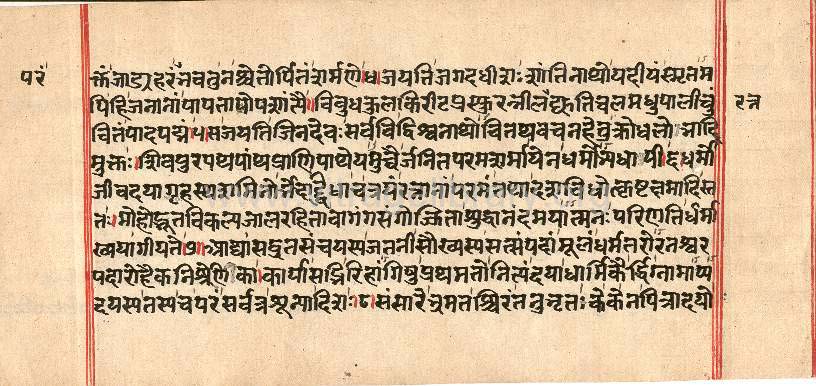 परं क्तं जाड्यहरं न चतुनश्चेतोर्पितं शर्मणे ४ जयति जगदधीशः शांतिनाथो यदीयं स्मृतम
पि हि जनानां पापतापोपशांत्यै । विबुधकुलकिरीटप्रस्फुरन्नीलद्युतिचलमधुपालीचुं रत्न
बितं पादपद्मं ५ स जयति जिनदेवः सर्वविद्विश्वनाथो वितथवचनहेतुक्रोधलोभादि
मुक्तः शिवपुरपथपांथप्राणिपाथेयमुच्चैर्जनितपरमशर्मा येन धर्मोभ्यधायी ६ धर्मो
जीवदया गृहस्थशमिनोर्भेदाद्विधा च त्रयं रत्नानां परमं तथा दशविधोत्कृष्टक्षमादिस्त
तः । मोहोद्भूतविकल्पजालरहिता वागंगसंगोज्झिता शुद्धानंदमयात्मनः परिणतिर्धर्मा
ख्यया गीयते ७ आद्या सद्व्रतसंचयस्य जननी सौख्यस्य सत्संपदां मूलं धर्मतरोरनश्वर
पदारोहैकनिश्रेणिका । कार्या सद्भिरिहांगिषु प्रथमतो नित्यं दया धार्मिकैर्द्धिग्नामाप्य
दयस्य तस्य च परं सर्वत्र शून्या दिशः ८ संसारे भ्रमतश्चिरं तनुभृतः के के न पित्रादयो